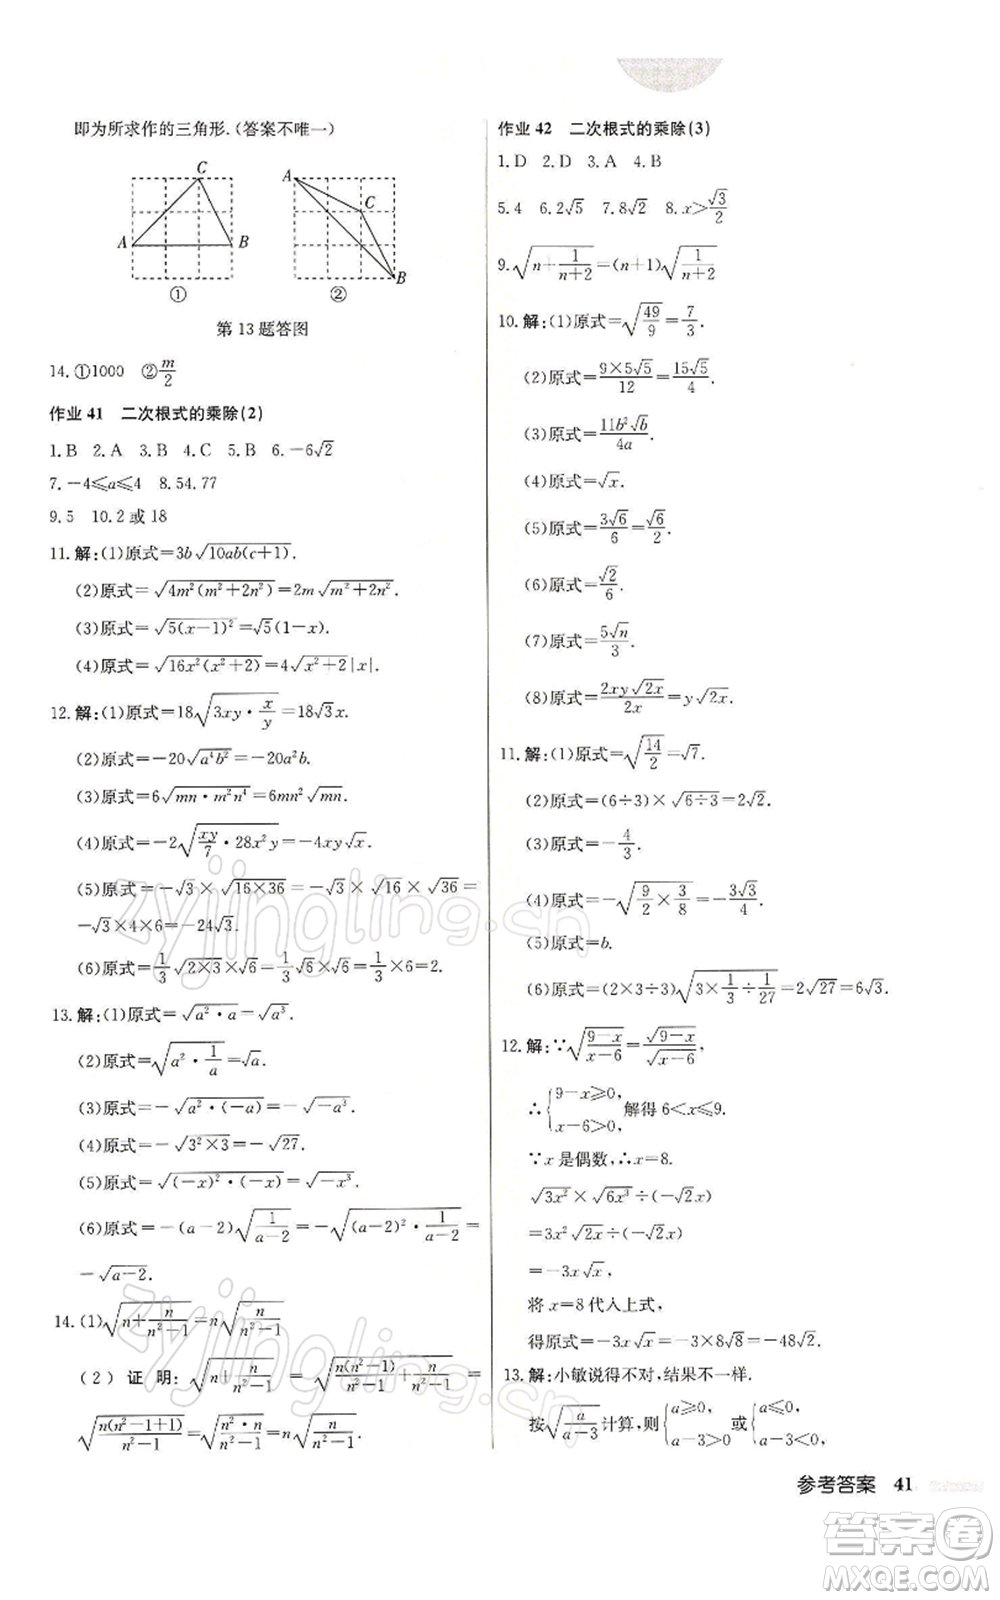 即为所求作的三角形.(答案不唯一)
C
A
B
①
A
C
B
②
第 13 题答图
14.①1000 ②m/2
作业 41 二次根式的乘除(2)
1.B 2.A 3.B 4.C 5.B 6.-6√2
7.-4≤a≤4 8.54.77
9.5 10.2 或 18
11.解:(1)原式=3b√(10ab(c+1)).
(2)原式=√(4m²(m²+2n²))=2m√(m²+2n²).
(3)原式=√(5(x-1)²)=√5(1-x).
(4)原式=√(16x²(x²+2))=4√(x²+2)|x|.
12.解:(1)原式=18√(3xy·x/y)=18√3x.
(2)原式=-20√(a⁴b²)=-20a²b.
(3)原式=6√(mn·m²n⁴)=6mn²√(mn).
(4)原式=-2√(xy/7·28x²y)=-4xy√x.
(5)原式=-√3×√(16×36)=-√3×√16×√36=
-√3×4×6=-24√3.
(6)原式=1/3√(2×3×6)=1/3√6×√6=2.
13.解:(1)原式=√(a²·a)=√(a³).
(2)原式=√(a²·1/a)=√a.
(3)原式=-√(a²·(-a))=-√(-a³).
(4)原式=-√(3²×3)=-√27.
(5)原式=√((-x)²·(-x))=√(-x³).
(6)原式=-(a-2)√(1/(a-2))=-√((a-2)²·1/(a-2))=
-√(a-2).
14.(1)√(n+n/(n²-1))=n√(n/(n²-1))
(2) 证 明:√(n+n/(n²-1)) = √(n(n²-1)/(n²-1)+n/(n²-1)) =
√(n(n²-1+1)/(n²-1))=√(n²·n/(n²-1))=n√(n/(n²-1)).
作业 42 二次根式的乘除(3)
1.D 2.D 3.A 4.B
5.4 6.2√5 7.8√2 8.x>√3/2
9.√(n+1/(n+2))=(n+1)√(1/(n+2))
10.解:(1)原式=√(49/9)=7/3.
(2)原式=9×5√5/12=15√5/4.
(3)原式=11b²√b/4a.
(4)原式=√x.
(5)原式=3√6/6=√6/2.
(6)原式=√2/6.
(7)原式=5√n/3.
(8)原式=2xy√(2x)/2x=y√(2x).
11.解:(1)原式=√(14/2)=√7.
(2)原式=(6÷3)×√(6÷3)=2√2.
(3)原式=-4/3.
(4)原式=-√(9/2×3/8)=-3√3/4.
(5)原式=b.
(6)原式=(2×3÷3)√(3×1/3÷1/27)=2√27=6√3.
12.解:∵√((9-x)/(x-6))=√(9-x)/√(x-6),
∴{9-x≥0, x-6>0, 解得 6<x≤9.
∵x 是偶数,∴x=8.
√(3x²)×√(6x³)÷(-√(2x²))
=3x²√(2x)÷(-√2x)
=-3x√x,
将 x=8 代入上式,
得原式=-3x√x=-3×8√8=-48√2.
13.解:小敏说得不对,结果不一样.
按√(a/(a-3))计算,则{a≥0, a-3>0 或{a≤0, a-3<0,
参考答案 41
zyjingling.cn
zyjingling.cn
答案卷
MXQE.COM